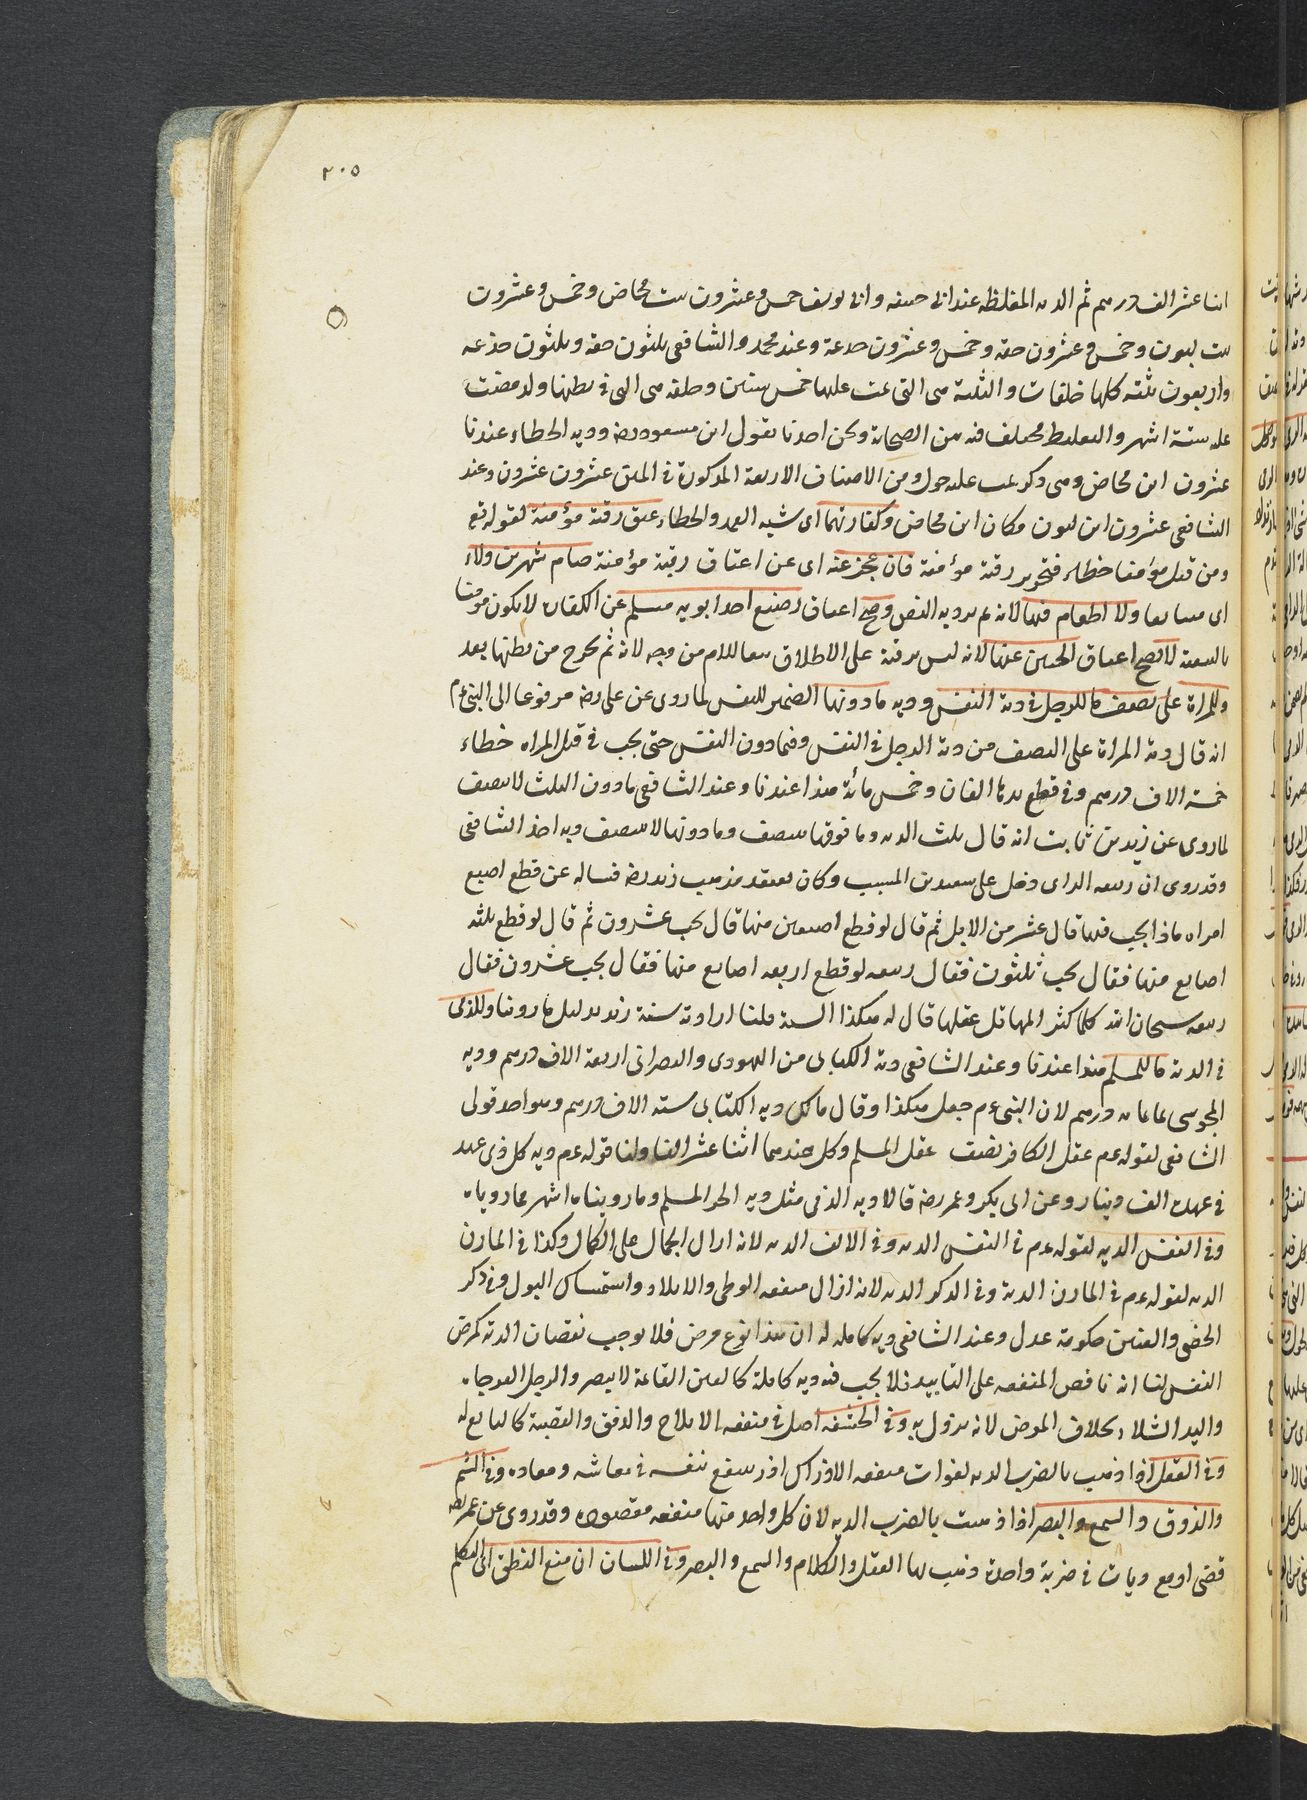 ٢٠٥
اثنا عشر الف درهم ثم الدية المغلظة عند ابي حنيفة وابي يوسف خمس وعشرون بنت مخاض وخمس وعشرون
بنت لبون وخمس وعشرون حقة وخمس وعشرون جذعة وعند محمد والشافعي ثلثون حقة وثلثون جذعة
واربعون ثنية كلها خلفات والثنية هي التي تمت عليها خمس سنين وخلفة هي التي في بطنها ولد مضت
عليه ستة اشهر والتغليظ مختلف فيه بين الصحابة ونحن اخذنا بقول ابن مسعود رضه ودية الخطاء عندنا
عشرون ابن مخاض وهي ذكر تمت عليه حول ومن الاصناف الاربعة المذكورة في المتن عشرون عشرون وعند
الشافعي عشرون ابن لبون مكان ابن مخاض وكفارتهما اى شبه العمد والخطاء عتق رقبة مؤمنة لقوله تع
ومن قتل مؤمنا خطاء فتحرير رقبة مؤمنة فان عجز عنه اى عن اعتاق رقبة مؤمنة صام شهرين ولاء
اى متتابعا ولا اطعام فيها لانه لم يرد به النص وصح اعتاق رضيع احد ابويه مسلم عن الكفارة لانه يكون مؤمنا
بالتبعية لا يصح اعتاق الجنين عنها لانه ليس برقبة على الاطلاق تبعا للام من وجه لانه لم يخرج من بطنها بعد
وللمراة على نصف ما للرجل في دية النفس ودية ما دونها الضمير للنفس لما روى عن على رضه مرفوعا الى النبي ءم
انه قال دية المراة على النصف من دية الرجل في النفس وفيما دون النفس حتى يجب في قتل المراة خطاء
خمسة الاف درهم وفي قطع يدها الفان وخمس مائة هذا عندنا وعند الشافعي ما دون الثلث لا ينصف
لما روى عن زيد بن ثابت انه قال ثلث الدية وما فوقها ينصف وما دونها لا ينصف وبه اخذ الشافعي
وقد روى ان ربيعة الراى دخل على سعيد بن المسيب وكان يعتقد مذهب زيد رضه فساله عن قطع اصبع
امراه ماذا يجب فيها قال عشر من الابل ثم قال لو قطع اصبعين منها قال يجب عشرون ثم قال لو قطع ثلثة
اصابع منها فقال يجب ثلثون فقال ربيعة لو قطع اربعة اصابع منها فقال يجب عشرون فقال
ربيعة سبحان الله كلما كثر المها قل عقلها قال له هكذا السنة قلنا اراد به سنة زيد بدليل ما روينا وللذمي
في الدية ما للمسلم هذا عندنا وعند الشافعي دية الكتابي من اليهودي والنصراني اربعة الاف درهم ودية
المجوسى ثمانمائة درهم لان النبي ءم جعل هكذا وقال مالك دية الكتابي ستة الاف درهم وهو احد قولى
الشافعي لقوله ءم عقل الكافر نصف عقل المسلم وكل عندهما اثنا عشر الفا ولنا قوله ءم دية كل ذى عهد
في عهده الف دينار وعن ابى بكر وعمر رضه قالا دية الذمي مثل دية الحر المسلم وما رويناه اشهر مما رواه
وفي النفس الدية لقوله ءم في النفس الدية وفي الانف الدية لانه ازال الجمال على الكمال وكذا في المارن
الدية لقوله ءم في المارن الدية وفي الذكر الدية لانه ازال منفعة الوطى والايلاد واستمساك البول وفي ذكر
الخصى والعنين حكومة عدل وعند الشافعي دية كاملة له ان هذا نوع مرض فلا يوجب نقصان الدية كمرض
النفس لنا انه ناقص المنفعة على التابيد فلا يجب فيه دية كاملة كالعين القائمة لا يبصر والرجل العرجاء
واليد الشلاء بخلاف المرض لانه يزول به وفي الحشفة اصل في منفعة الايلاج والدفق والقصبة كالتابع له
وفي العقل اذا ذهب بالضرب الدية لفوات منفعة الادراك اذ به ينتفع نفسه في معاشه ومعاده وفي الشم
والذوق والسمع والبصر اذا ذهبت بالضرب الدية لان كل واحد منها منفعة مقصودة وقد روى عن عمر رضه
قضى اربع ديات في ضربة واحدة ذهب بها العقل والكلام والسمع والبصر وفي اللسان ان منع النطق الى التكلم